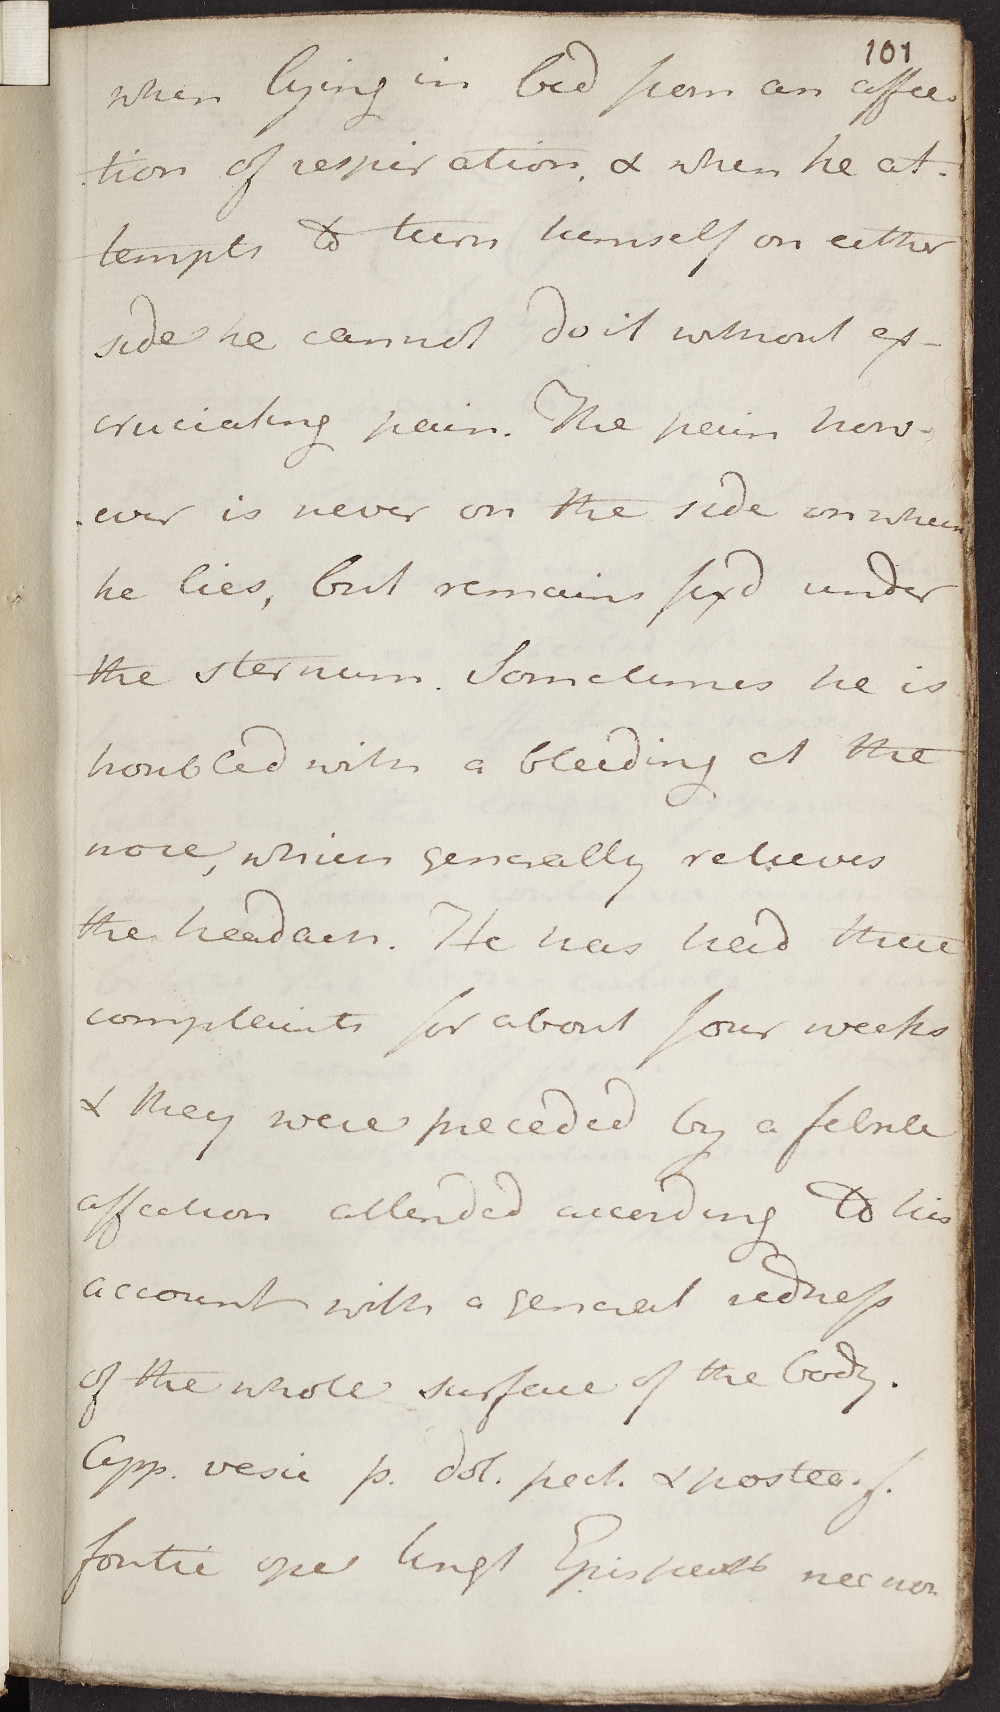 101
when lying in bed from an affec-
tion of respiration, & when he at-
tempts to turn himself on either
side he cannot do it without ex-
cruciating pain. The pain how-
ever is never on the side on which
he lies, but remains fixd under
the sternum. Sometimes he is
troubled with a bleeding at the
nose, which generally relieves
the headach. He has had these
complaints for about four weeks
& they were preceded by a febrile
affection attended according to his
account with a general redness
of the whole surface of the body.
App. vesic p. dol. pect. & postea. f.
fontic ope Ungt Epispast nec non